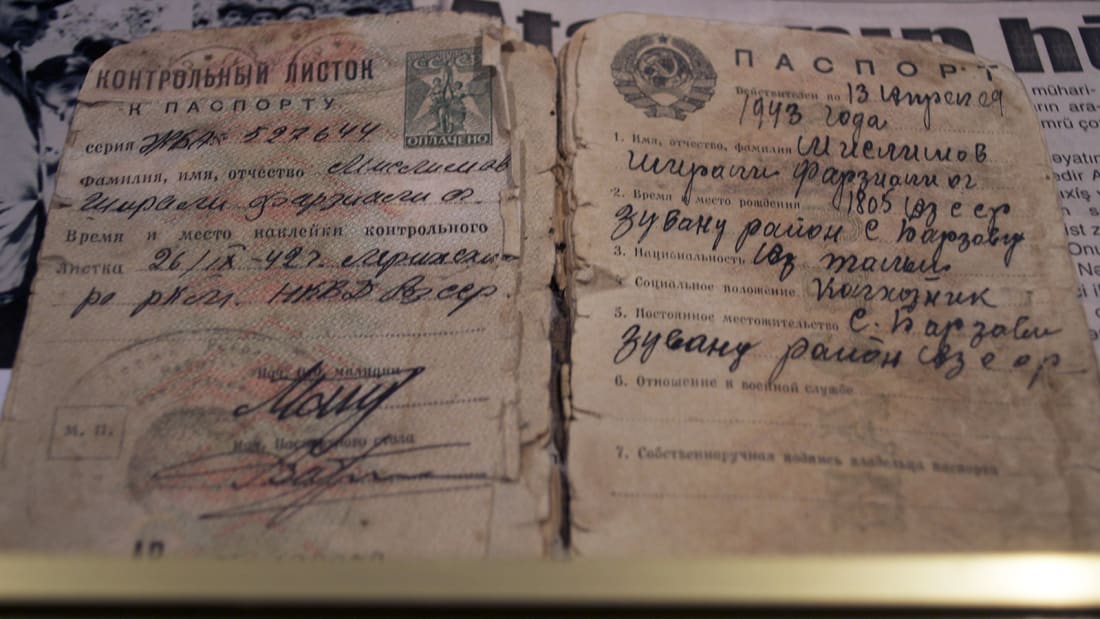 КОНТРОЛЬНЫЙ ЛИСТОК
К ПАСПОРТУ
СССР
ОПЛАЧЕНО
серия ЖБА № 527644
Фамилия, имя, отчество Мислимов
Ширали Фарзиали о.
Время и место наклейки контрольного
листка 26/IX-42г. Лерикск
ро рком. НКВД Аз сср.
Нач. милиции
М. П.
Нач. Паспортного стола
ПАСПОРТ
Действителен по 13 апреля
1943 года
1. Имя, отчество, фамилия Мислимов
Ширали Фарзиали ог
2. Время и место рождения 1805 Аз ССР
зуванд район с Барзаву
3. Национальность Аз талыш
4. Социальное положение Колхозник
5. Постоянное местожительство С. Барзави
зуванд район Аз сср
6. Отношение к военной службе
7. Собственноручная подпись владельца паспорта
mühari-
rın ara-
mrü ço